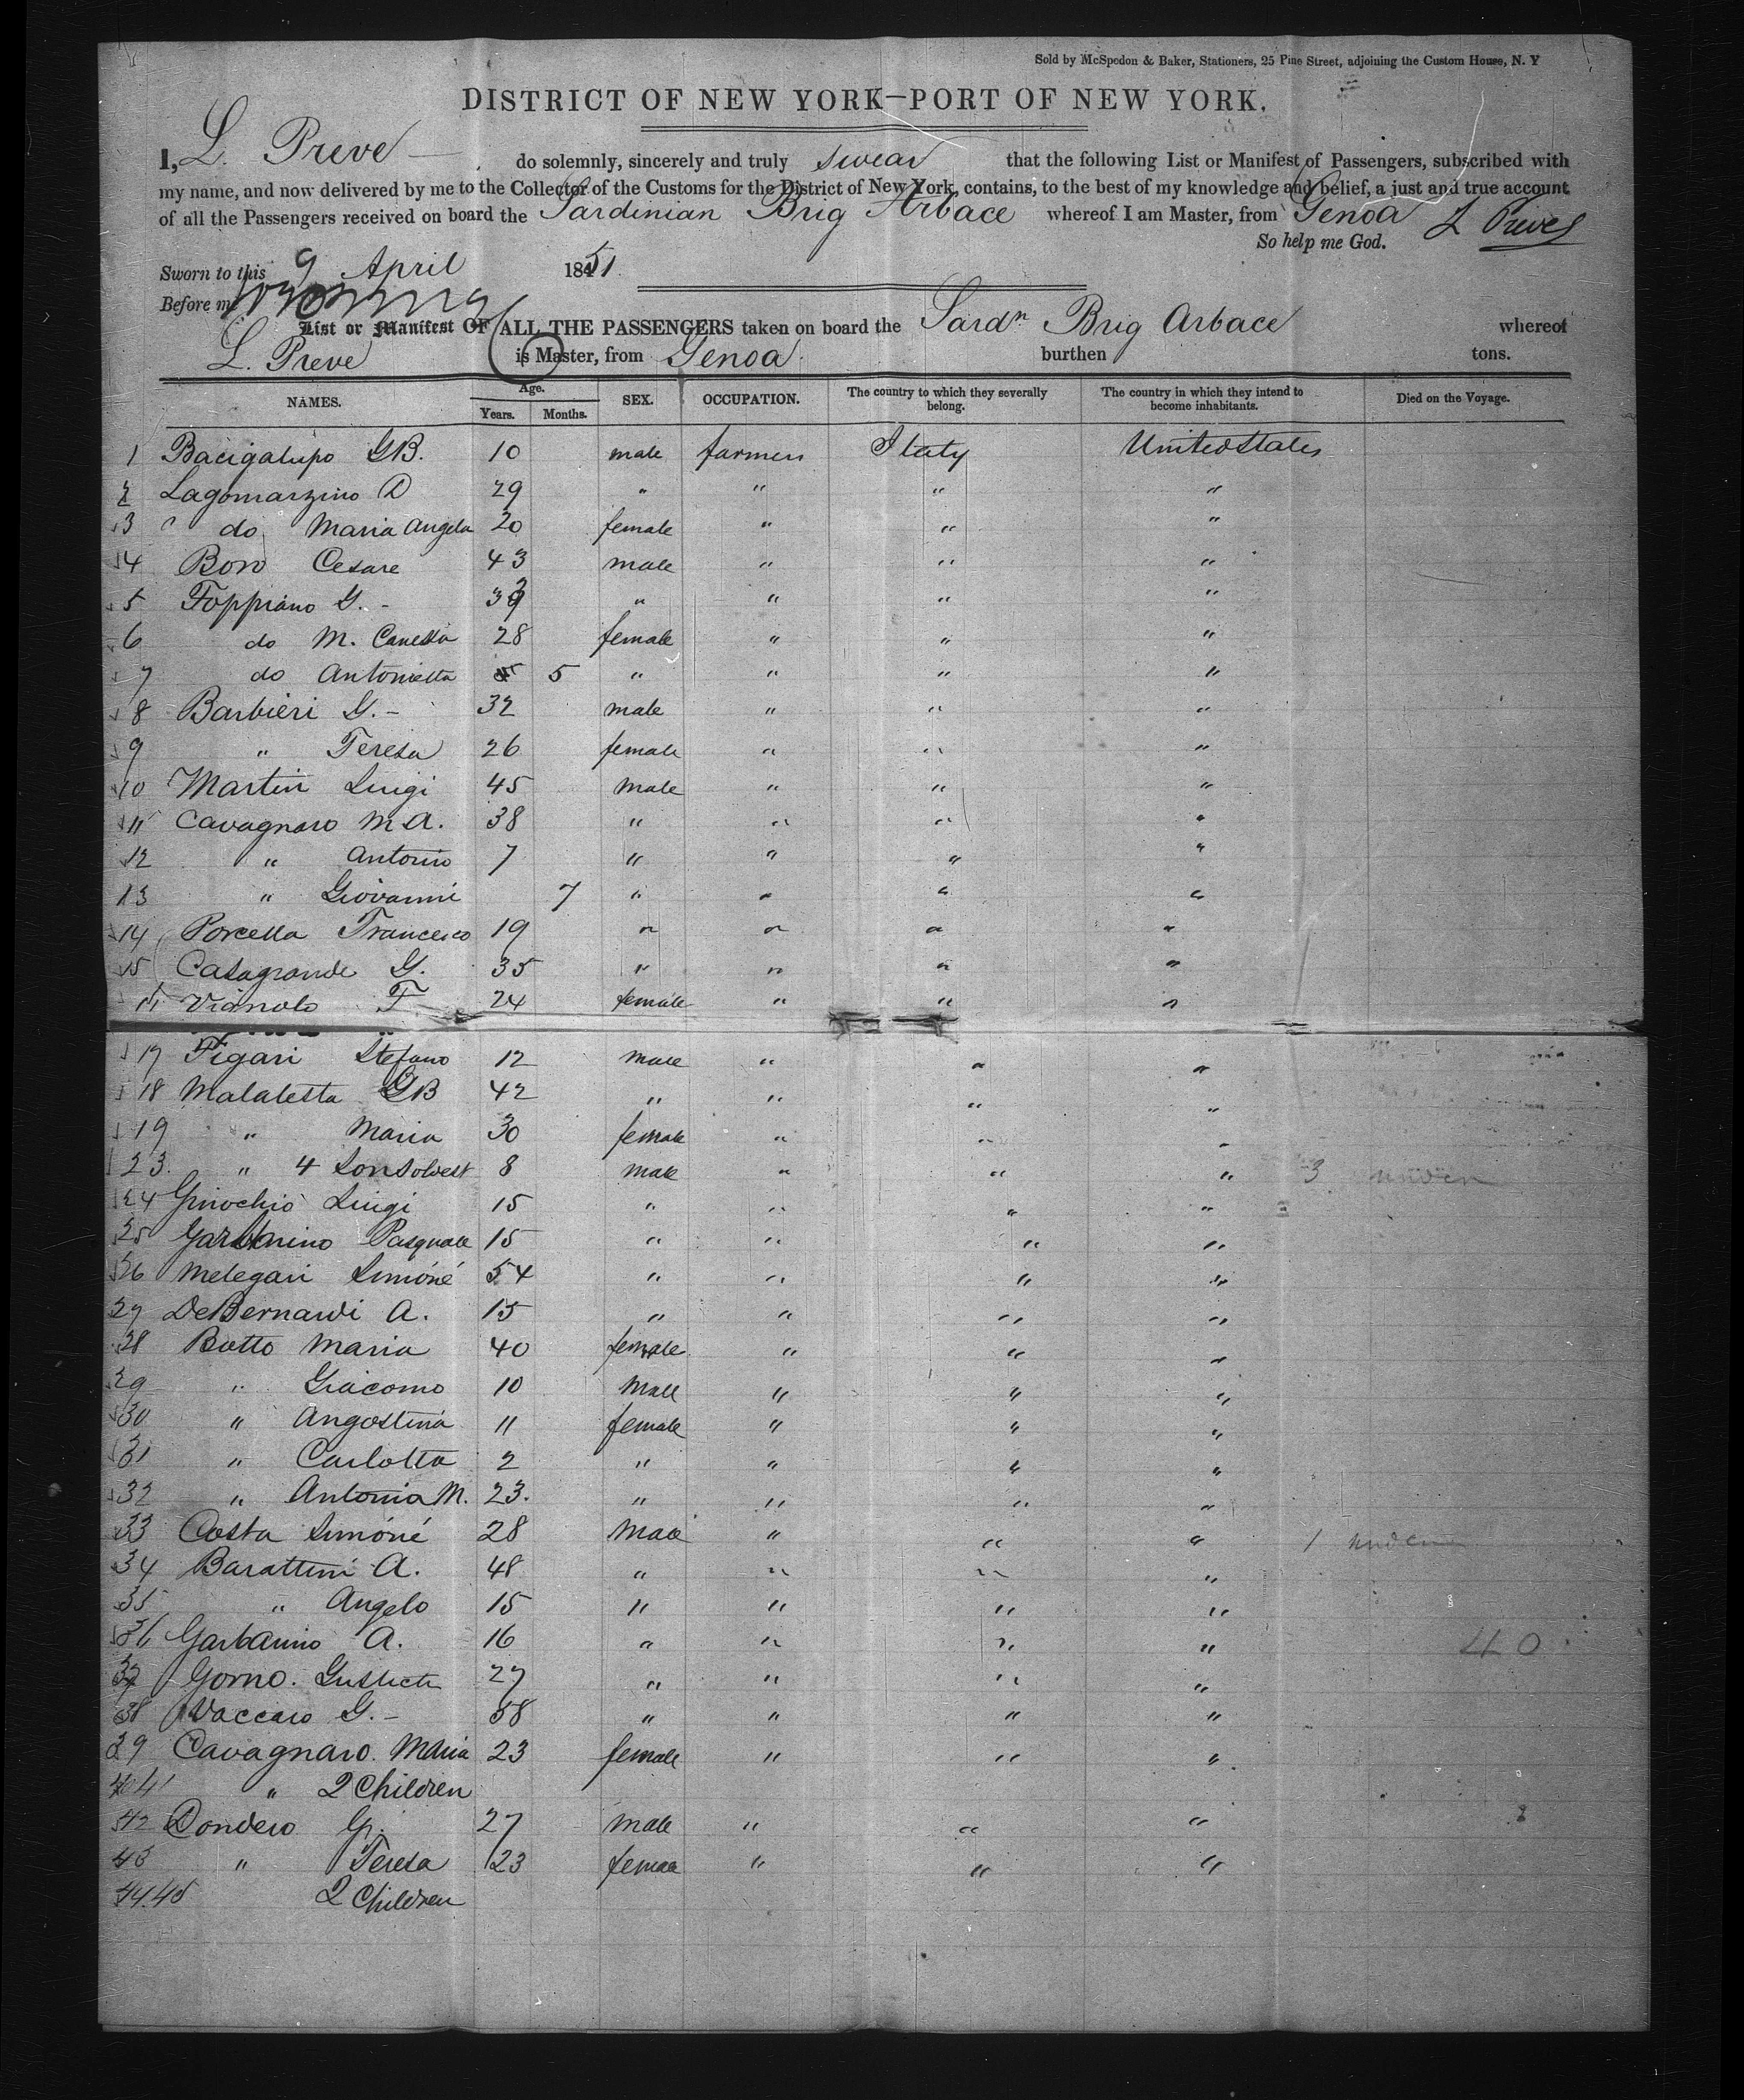 Sold by McSpedon & Baker, Stationers, 25 Pine Street, adjoining the Custom House, N. Y
DISTRICT OF NEW YORK—PORT OF NEW YORK.
I, L. Preve do solemnly, sincerely and truly swear that the following List or Manifest of Passengers, subscribed with
my name, and now delivered by me to the Collector of the Customs for the District of New York, contains, to the best of my knowledge and belief, a just and true account
of all the Passengers received on board the Sardinian Brig Arbace whereof I am Master, from Genoa L Preve
So help me God.
Sworn to this 9 April 1851
Before me
List or Manifest OF ALL THE PASSENGERS taken on board the Sardn Brig Arbace whereof
L. Preve is Master, from Genoa burthen tons.
NAMES. Age. Years. Months. SEX. OCCUPATION. The country to which they severally belong. The country in which they intend to become inhabitants. Died on the Voyage.
1 Bacigalupo GB. 10 male farmers Italy United States
2 Lagomarzino D 29 " " " "
3 " do Maria Angela 20 female " " "
4 Boro Cesare 43 male " " "
5 Foppiano G. - 39 " " " "
6 do M. Canessa 28 female " " "
7 do Antonietta 5 " " " "
8 Barbieri G. - 32 male " " "
9 " Teresa 26 female " " "
10 Martin Luigi 45 male " " "
11 Cavagnaro M A. 38 " " " "
12 " Antonio 7 " " " "
13 " Giovanni 7 " " " "
14 Porcella Francesco 19 " " " "
15 Casagrande G. 35 " " " "
Vignolo F 24 female " " "
17 Figari Stefano 12 male " " "
18 Malatesta GB 42 " " " "
19 " Maria 30 female " " "
23. " 4 Sons oldest 8 male " " " 3 under
24 Ginochio Luigi 15 " " " "
25 Garbarino Pasquale 15 " " " "
26 Melegari Simóné 54 " " " "
27 DeBernardi A. 15 " " " "
28 Botto Maria 40 female " " "
29 " Giacomo 10 Male " " "
30 " Angostina 11 female " " "
31 " Carlotta 2 " " " "
32 " Antonia M. 23. " " " "
33 Costa Simóné 28 Male " " " 1 under
34 Barattini A. 48 " " " "
35 " Angelo 15 " " " "
36 Garbarino A. 16 " " " " 40
37 Gorno. 27 " " " "
38 Vaccaro G. - 58 " " " "
39 Cavagnaro. Maria 23 female " " "
40 41 " 2 Children
42 Dondero G. 27 male " " "
43 " Teresa 23 female " " "
44.45 2 Children